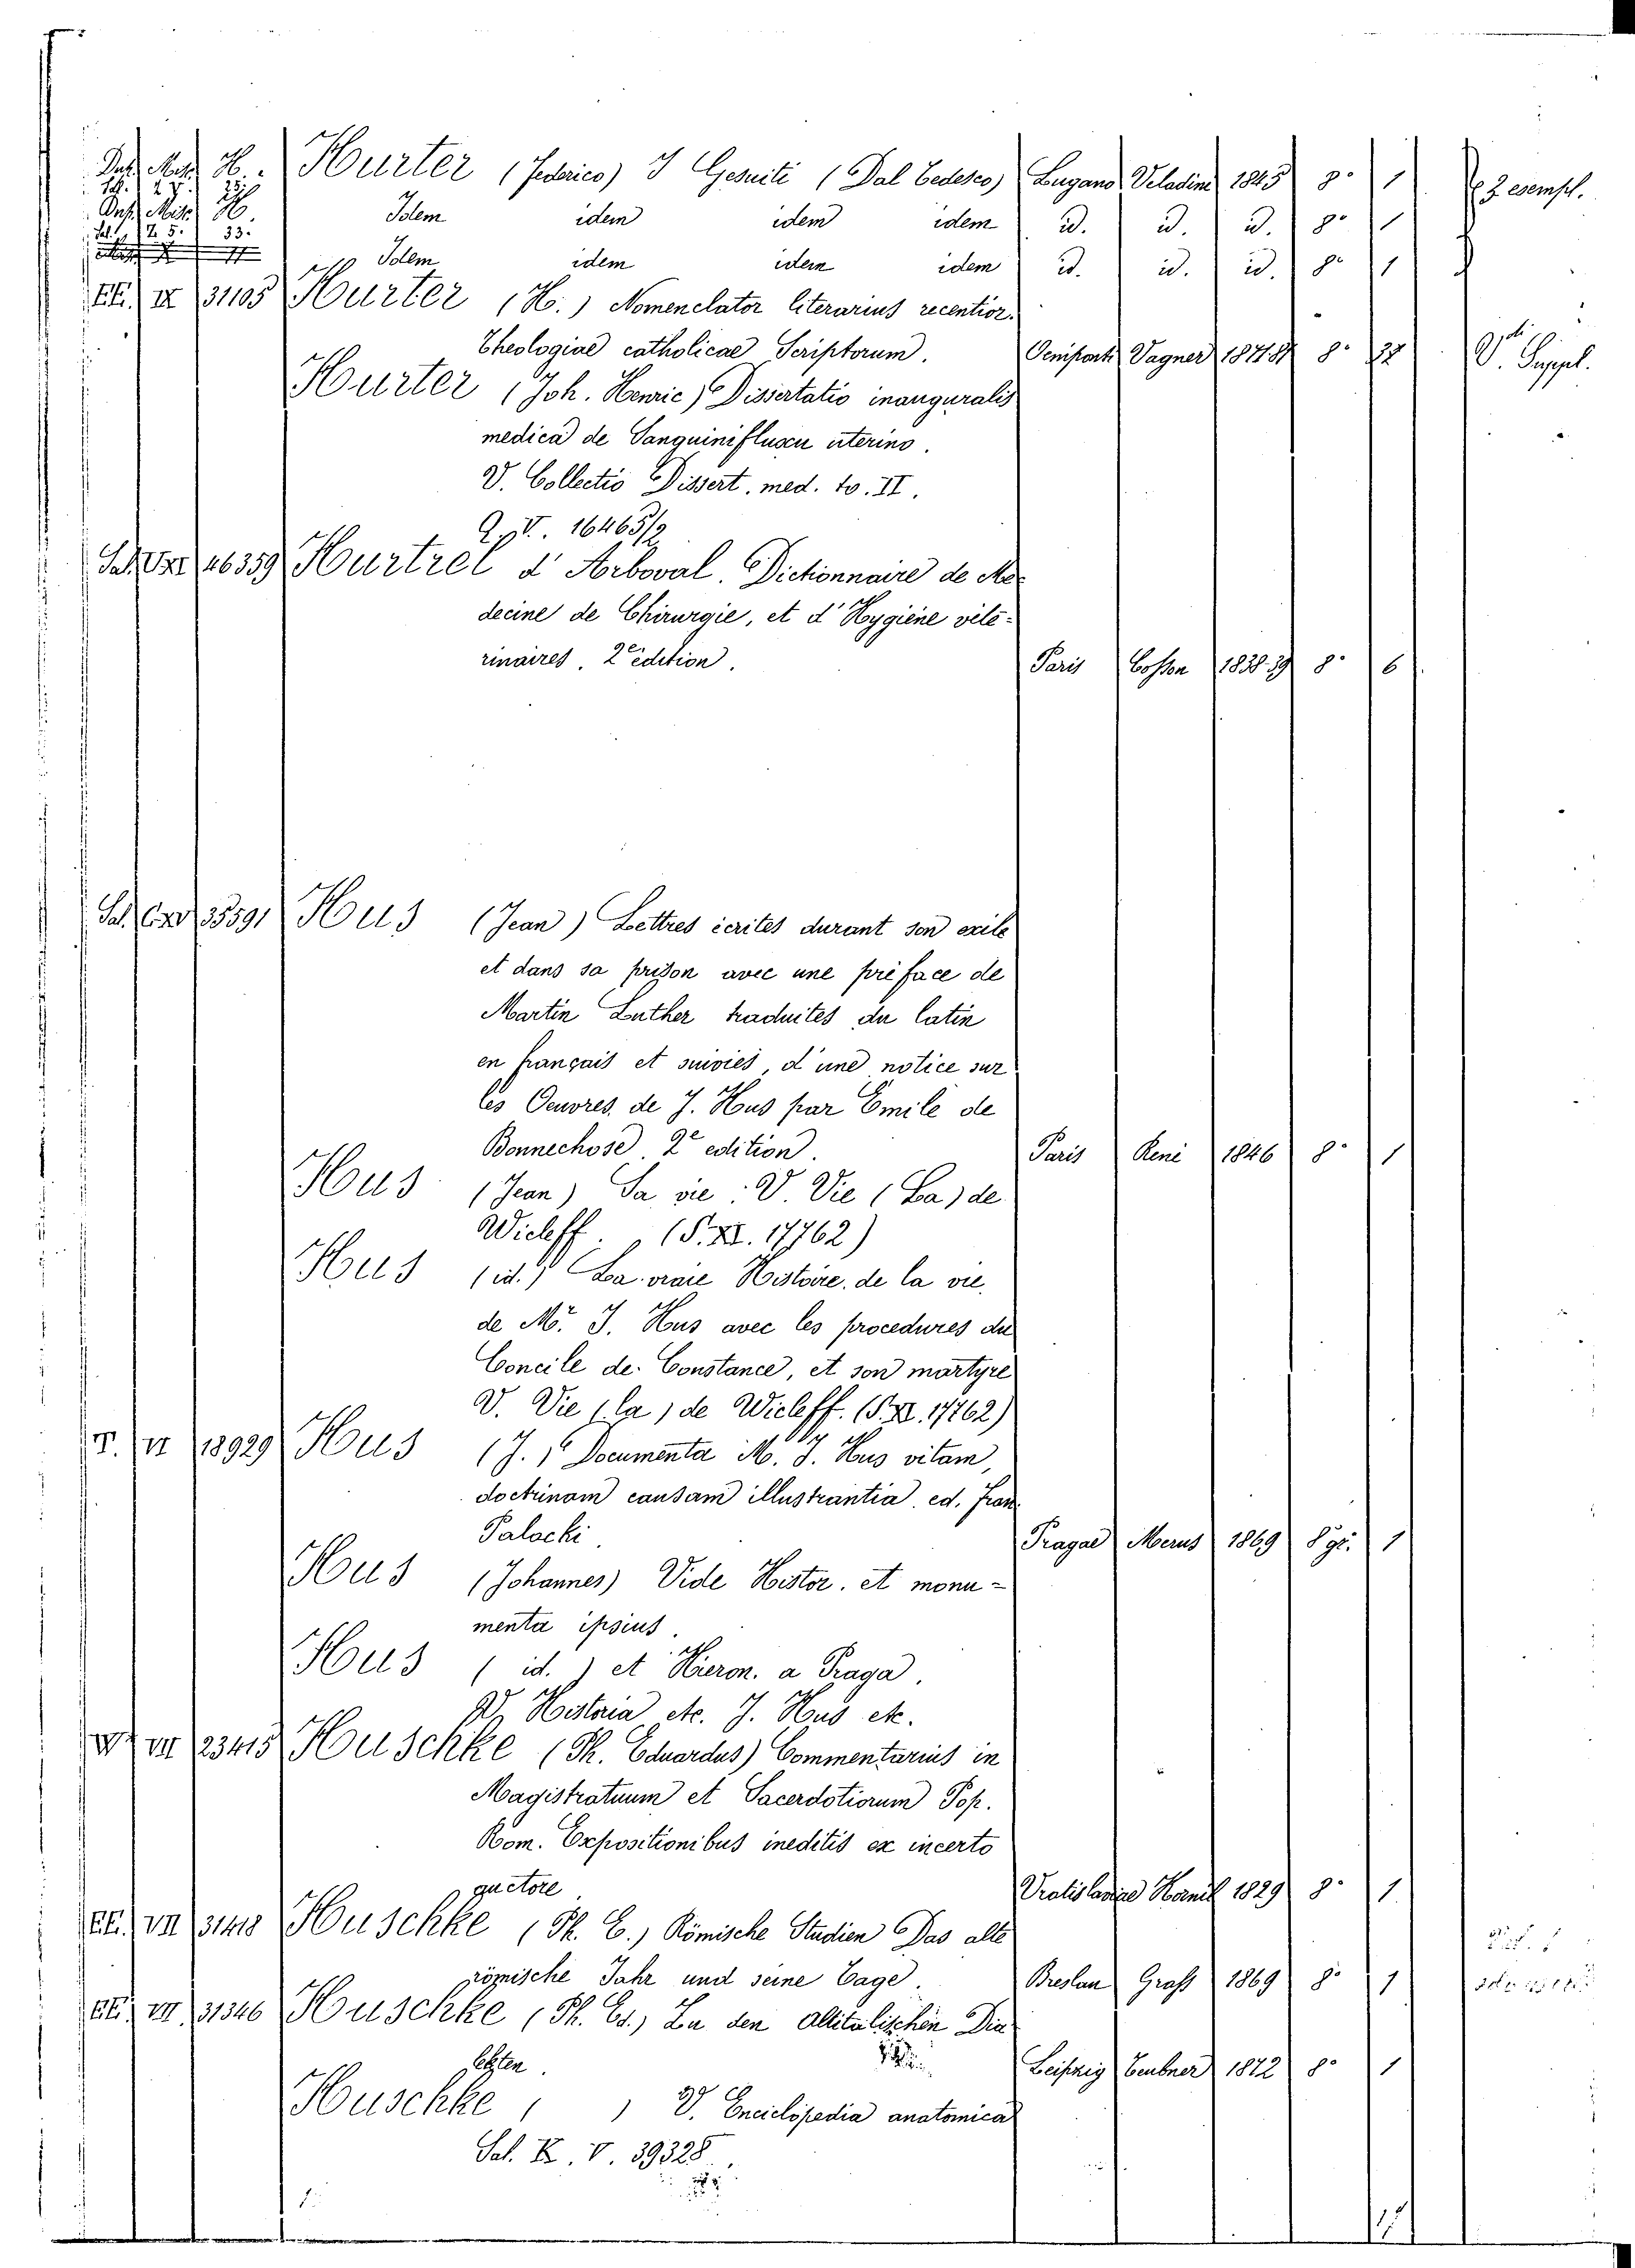 Hurter (Federico) I Gesuiti (Dal Tedesco) Lugano Veladini 1845 8° 1
Idem idem idem idem id. id. id. 8° 1
Idem idem idem idem id. id. id. 8° 1
31105 Hurter (H.) Nomenclator literarius recentior.
Theologiae catholicae Scriptorum. Oeniponti Vagner 8° V. Suppl.
Hurter (Joh. Henric) Dissertatio inauguralis
medica de Sanguinifluxu uterino.
V. Collectio Dissert. med. to. II.
Q. V. 16465/2
46359 Hurtrel d'Arboval. Dictionnaire de Me
decine de Chirurgie, et d'Hygiène vété-
rinaires. 2e édition. Paris 1838.39 8° 6
35591 Hus (Jean) Lettres écrites durant son exile
et dans sa prison avec une préface de
Martin Luther traduites du latin
en français et suivies, d'une notice sur
les Oeuvres de J. Hus par Emile de
Bonnechose. 2e edition. Paris René 1846 8° 1
Hus (Jean) Sa vie. V. Vie (La) de
Wicleff. (S. XI. 17762)
Hus (id.) La vraie Histoire de la vie
de Mr. J. Hus avec les procedures du
Concile de Constance, et son martyre
V. Vie (la) de Wicleff. (S. XI. 17762)
T. VI 18929 Hus (J.) Documenta M. J. Hus vitam,
doctrinam causam illustrantia. ed. Fran
Palacki. Pragae 1869 8 gr. 1
Hus (Johannes) Vide Histor. et monu-
menta ipsius.
Hus (id.) et Hieron. a Praga.
V. Historia etc. J. Hus etc.
VII 23415 Huschke (Ph. Eduardus) Commentarius in
Magistratuum et Sacerdotiorum Pop.
Rom. Expositionibus ineditis ex incerto
auctore Vratislaviae 1829 8° 1
VII Huschke (Ph. E.) Römische Studien Das alte
römische Jahr und seine Tage. Breslau Grass 1869 8° 1
VII 31346 Huschke (Ph. Ed.) Zu den Altitalischen Dia
lekten. Leipzig Teubner 1872 8° 1
Huschke ( ) V. Enciclopedia anatomica
Sal. V. 39328